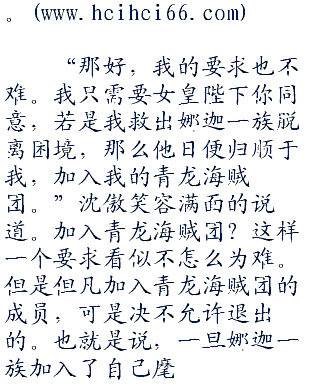 。(www.hcihci66.com)
“那好，我的要求也不
难。我只需要女皇陛下你同
意，若是我救出娜迦一族脱
离困境，那么他日便归顺于
我，加入我的青龙海贼
团。”沈傲笑容满面的说
道。加入青龙海贼团？这样
一个要求看似不怎么为难。
但是但凡加入青龙海贼团的
成员，可是决不允许退出
的。也就是说，一旦娜迦一
族加入了自己麾